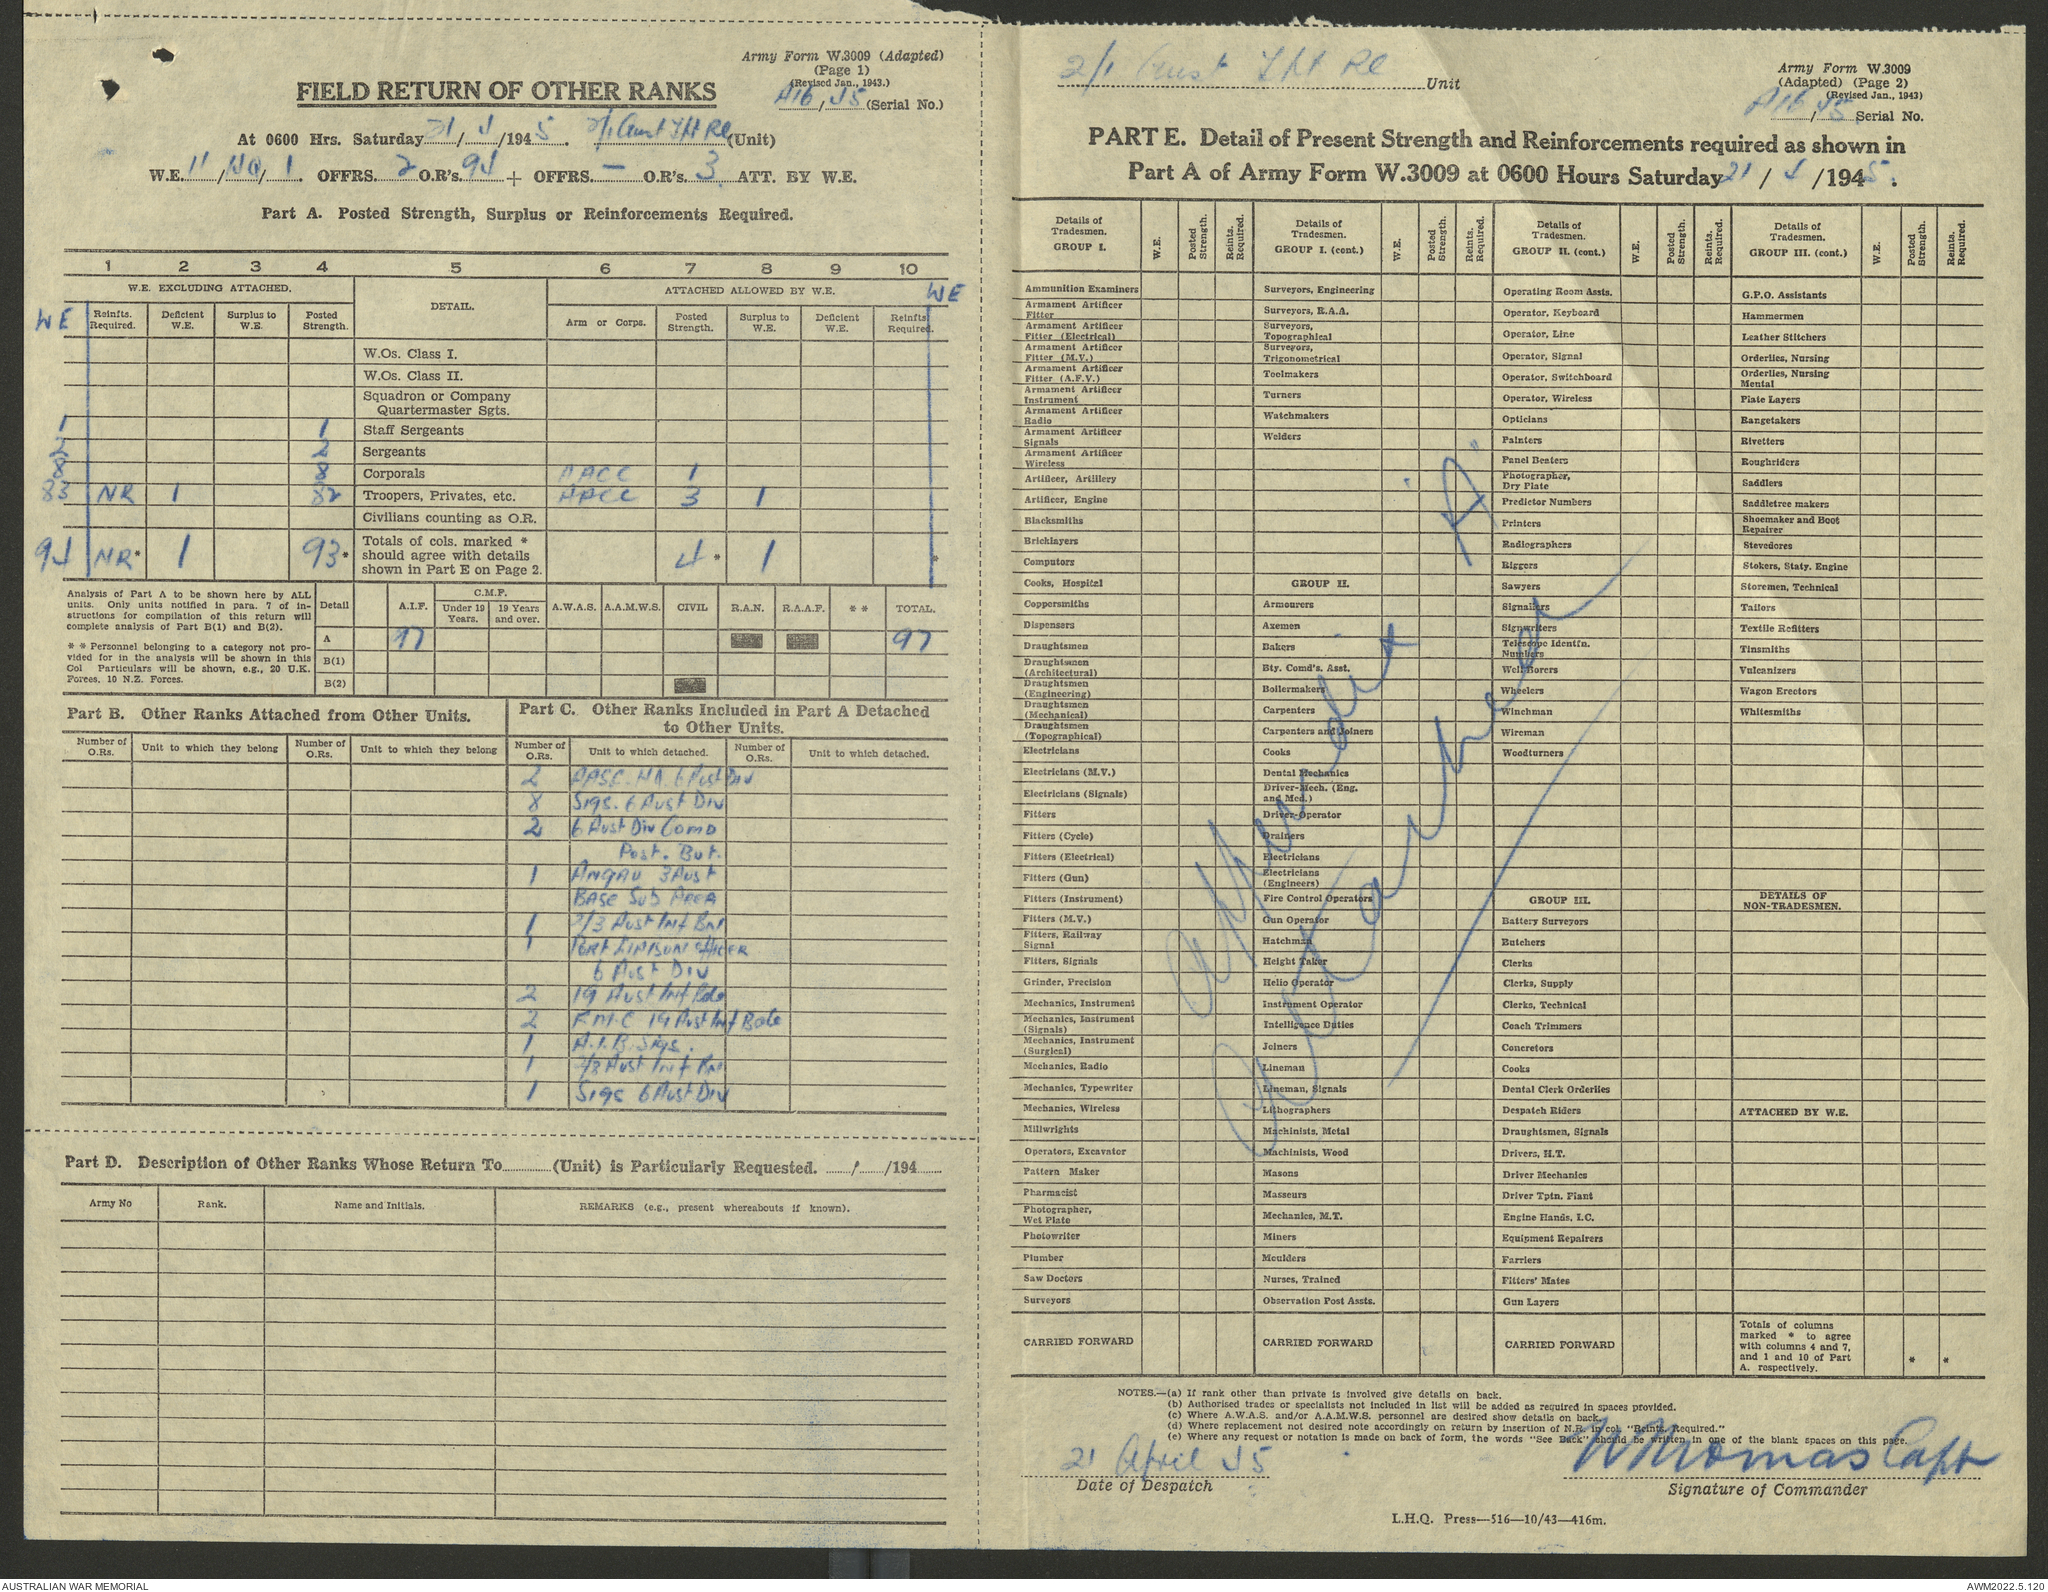 Army Form W.3009 (Adapted)
(Page 1)
(Revised Jan., 1943.)
FIELD RETURN OF OTHER RANKS
A16/45 (Serial No.)
At 0600 Hrs. Saturday 21/4/1945. 2/1 Aust Tpt Pl (Unit)
W.E. 11/ /1. OFFRS. 2 O.R's. 94 + OFFRS. — O.R's. 3 ATT. BY W.E.
Part A. Posted Strength, Surplus or Reinforcements Required.
1 2 3 4 5 6 7 8 9 10
W.E. EXCLUDING ATTACHED. DETAIL. ATTACHED ALLOWED BY W.E. WE
WE Reinfts. Required. Deficient W.E. Surplus to W.E. Posted Strength. Arm or Corps. Posted Strength. Surplus to W.E. Deficient W.E. Reinfts Required.
W.Os. Class I.
W.Os. Class II.
Squadron or Company
Quartermaster Sgts.
1 1 Staff Sergeants
2 2 Sergeants
8 8 Corporals AACC 1
83 NR 1 82 Troopers, Privates, etc. AACC 3 1
Civilians counting as O.R.
94 NR* 1 93* Totals of cols. marked * should agree with details shown in Part E on Page 2. 4* 1 *
Analysis of Part A to be shown here by ALL
units. Only units notified in para. 7 of in-
structions for compilation of this return will
complete analysis of Part B(1) and B(2).
* * Personnel belonging to a category not pro-
vided for in the analysis will be shown in this
Col Particulars will be shown, e.g., 20 U.K.
Forces. 10 N.Z. Forces.
Detail A.I.F. C.M.F. Under 19 Years. 19 Years and over. A.W.A.S. A.A.M.W.S. CIVIL R.A.N. R.A.A.F. * * TOTAL.
A 97 97
B(1)
B(2)
Part B. Other Ranks Attached from Other Units.
Number of O.Rs. Unit to which they belong Number of O.Rs. Unit to which they belong
Part C. Other Ranks Included in Part A Detached
to Other Units.
Number of O.Rs. Unit to which detached. Number of O.Rs. Unit to which detached.
2 AASC. HQ 6 Aust Div
8 Sigs. 6 Aust Div
2 6 Aust Div Comd
Post. But.
1 Angau 3 Aust
Base Sub Area
1 2/3 Aust Inf Bn
1 Port Liaison Officer
6 Aust Div
2 19 Aust Inf Bde
2 F.M.C 19 Aust Inf Bde
1 A.I.B. Sigs.
1 2/3 Aust Inf Bn
1 Sigs 6 Aust Div
Part D. Description of Other Ranks Whose Return To (Unit) is Particularly Requested. / /194
Army No Rank. Name and Initials. REMARKS (e.g., present whereabouts if known).
2/1 Aust Tpt Pl Unit
Army Form W.3009
(Adapted) (Page 2)
(Revised Jan., 1943)
A16/45 Serial No.
PART E. Detail of Present Strength and Reinforcements required as shown in
Part A of Army Form W.3009 at 0600 Hours Saturday 21/4/1945.
Details of Tradesmen. GROUP I. W.E. Posted Strength. Reints. Required.
Ammunition Examiners
Armament Artificer Fitter
Armament Artificer Fitter (Electrical)
Armament Artificer Fitter (M.V.)
Armament Artificer Fitter (A.F.V.)
Armament Artificer Instrument
Armament Artificer Radio
Armament Artificer Signals
Armament Artificer Wireless
Artificer, Artillery
Artificer, Engine
Blacksmiths
Bricklayers
Computors
Cooks, Hospital
Coppersmiths
Dispensers
Draughtsmen
Draughtsmen (Architectural)
Draughtsmen (Engineering)
Draughtsmen (Mechanical)
Draughtsmen (Topographical)
Electricians
Electricians (M.V.)
Electricians (Signals)
Fitters
Fitters (Cycle)
Fitters (Electrical)
Fitters (Gun)
Fitters (Instrument)
Fitters (M.V.)
Fitters, Railway Signal
Fitters, Signals
Grinder, Precision
Mechanics, Instrument
Mechanics, Instrument (Signals)
Mechanics, Instrument (Surgical)
Mechanics, Radio
Mechanics, Typewriter
Mechanics, Wireless
Millwrights
Operators, Excavator
Pattern Maker
Pharmacist
Photographer, Wet Plate
Photowriter
Plumber
Saw Doctors
Surveyors
CARRIED FORWARD
Details of Tradesmen. GROUP I. (cont.) W.E. Posted Strength. Reints. Required.
Surveyors, Engineering
Surveyors, R.A.A.
Surveyors, Topographical
Surveyors, Trigonometrical
Toolmakers
Turners
Watchmakers
Welders
GROUP II.
Armourers
Axemen
Bakers
Bty. Comd's. Asst.
Boilermakers
Carpenters
Carpenters and Joiners
Cooks
Dental Mechanics
Driver-Mech. (Eng. and Med.)
Driver-Operator
Drainers
Electricians
Electricians (Engineers)
Fire Control Operators
Gun Operator
Hatchman
Height Taker
Helio Operator
Instrument Operator
Intelligence Duties
Joiners
Lineman
Lineman, Signals
Lithographers
Machinists, Metal
Machinists, Wood
Masons
Masseurs
Mechanics, M.T.
Miners
Moulders
Nurses, Trained
Observation Post Assts.
CARRIED FORWARD
Details of Tradesmen. GROUP II. (cont.) W.E. Posted Strength. Reints. Required.
Operating Room Assts.
Operator, Keyboard
Operator, Line
Operator, Signal
Operator, Switchboard
Operator, Wireless
Opticians
Painters
Panel Beaters
Photographer, Dry Plate
Predictor Numbers
Printers
Radiographers
Riggers
Sawyers
Signallers
Signwriters
Telescope Identfn. Numbers
Well Borers
Wheelers
Winchman
Wireman
Woodturners
GROUP III.
Battery Surveyors
Butchers
Clerks
Clerks, Supply
Clerks, Technical
Coach Trimmers
Concretors
Cooks
Dental Clerk Orderlies
Despatch Riders
Draughtsmen, Signals
Drivers, H.T.
Driver Mechanics
Driver Tptn. Plant
Engine Hands, I.C.
Equipment Repairers
Farriers
Fitters' Mates
Gun Layers
CARRIED FORWARD
Details of Tradesmen. GROUP III. (cont.) W.E. Posted Strength. Reints. Required.
G.P.O. Assistants
Hammermen
Leather Stitchers
Orderlies, Nursing
Orderlies, Nursing Mental
Plate Layers
Rangetakers
Rivetters
Roughriders
Saddlers
Saddletree makers
Shoemaker and Boot Repairer
Stevedores
Stokers, Staty. Engine
Storemen, Technical
Tailors
Textile Refitters
Tinsmiths
Vulcanizers
Wagon Erectors
Whitesmiths
DETAILS OF NON-TRADESMEN.
ATTACHED BY W.E.
Totals of columns marked * to agree with columns 4 and 7, and 1 and 10 of Part A. respectively. * *
Appendix "A"
Attached
NOTES.—(a) If rank other than private is involved give details on back.
(b) Authorised trades or specialists not included in list will be added as required in spaces provided.
(c) Where A.W.A.S. and/or A.A.M.W.S. personnel are desired show details on back.
(d) Where replacement not desired note accordingly on return by insertion of N.R. in col. "Reints. Required."
(e) Where any request or notation is made on back of form, the words "See Back" should be written in one of the blank spaces on this page.
21 April 45
Date of Despatch
W Thomas Capt
Signature of Commander
L.H.Q. Press—516—10/43—416m.
AUSTRALIAN WAR MEMORIAL
AWM2022.5.120